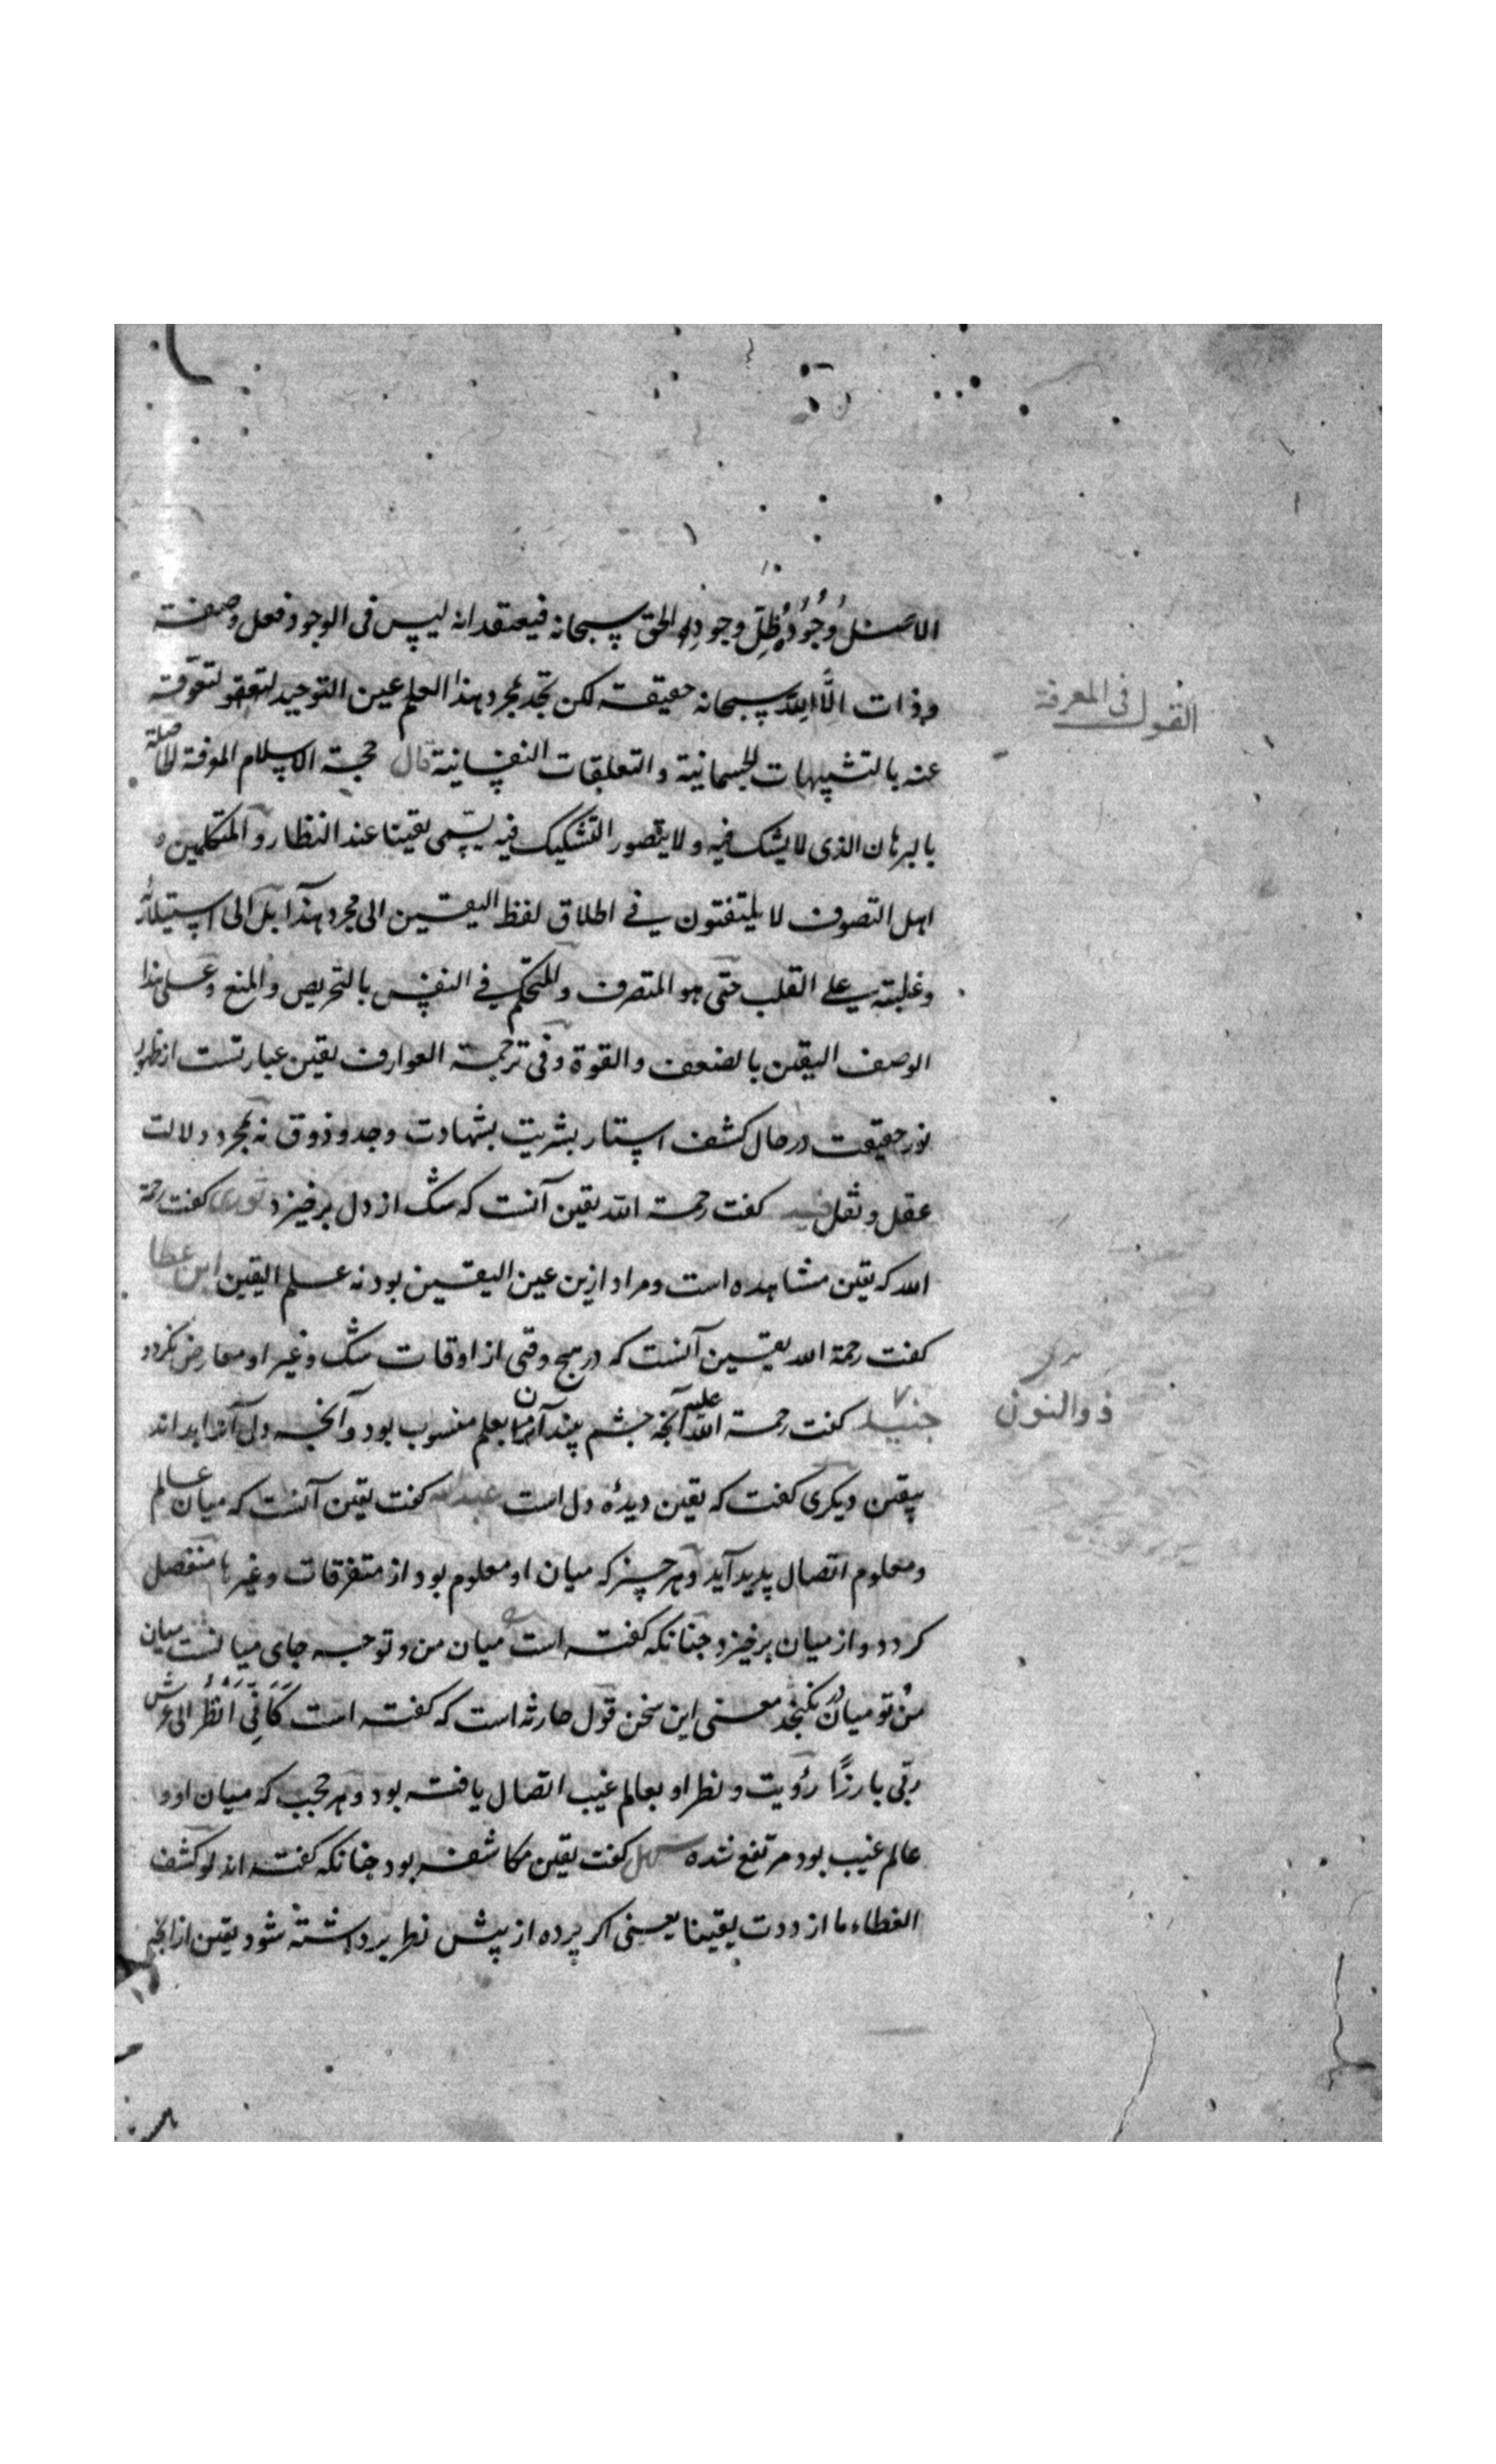 الاصل وُجُودُه ظِلّ وجودِه الحق سبحانه فیعتقد انه لیس فی الوجود فعل وصفة
وذات الّا الله سبحانه حقیقة لکن تجد بمجرد هذا العلم عین التوحید
القول فی المعرفة
عنه بالتشبیهات الجسمانیة والتعلقات النفسانیة قال حجة الاسلام المعرفة الحاصلة
بالبرهان الذی لا یشک فیه ولا یتصور التشکیک فیه یسمی یقینا عند النظار والمتکلمین و
اهل التصوف لا یلتفتون فی اطلاق لفظ الیقین الی مجرد هذا بل الی استیلائه
وغلبته علی القلب حتی هو المتصرف والمتحکم فی النفس بالتحریص والمنع وعلی هذا
الوصف الیقین بالضعف والقوة وفی ترجمة العوارف یقین عبارتست از ظهور
نور حقیقت در حال کشف استار بشریت بشهادت وجد و ذوق نه بمجرد دلالت
عقل و نقل کفت رحمة الله یقین آنست که شک از دل برخیزد نوری کفت رحمة
الله که یقین مشاهده است و مراد ازین عین الیقین بود نه علم الیقین ابن عطا
کفت رحمة الله یقین آنست که در هیچ وقتی از اوقات شک و غیر او معارض نکردد
ذو النون
جنید کفت رحمة الله علیه آنجه جشم بیند آن بعلم منسوب بود و آنجه دل آنرا بداند
بیقین دیکری کفت که یقین دیدۀ دل است عبدالله کفت یقین آنست که میان عالم
و معلوم اتصال پدید آید و هر چیز که میان او معلوم بود از متفرقات و غیرها منفصل
کردد و از میان برخیزد جنانکه کفته است میان من و تو جه جای میانست میان
من و تو میان در نکنجد معنی این سخن قول حارثه است که کفته است کَاَنّی اَنْظُرُ الی عرش
ربّی بارزًا رؤیت و نظر او بعالم غیب اتصال یافته بود و هر حجب که میان او و
عالم غیب بود مرتفع شده سهل کفت یقین مکاشفه بود جنانکه کفته اند لو کشف
الغطاء ما ازددت یقینا یعنی اکر پرده از پیش نظر برداشته شود یقین از آنجه